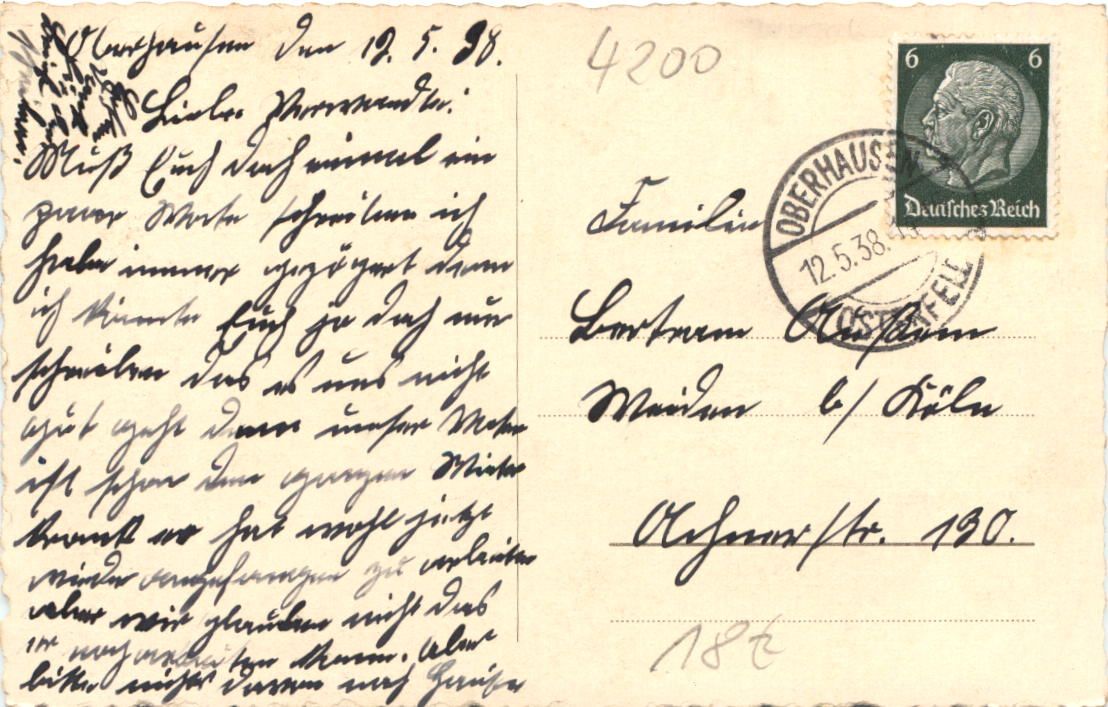 Oberhausen den 12. 5. 38.
Liebe Verwandte!
Muß Euch doch einmal ein
paar Worte schreiben ich
habe immer gezögert denn
ich könnte Euch ja doch nur
schreiben das es uns nicht
gut geht denn unser
ist schon den ganzen Winter
krank er hat wohl jetzt
wieder angefangen zu arbeiten
aber wir glauben nicht das
er kann. Aber
bitte nichts davon nach Hause
4200
6 6
Deutsches Reich
OBERHAUSEN
12.5.38.
OSTERFELD
Familie
Bertram
Weiden b/ Köln
Achnerstr. 130.
18